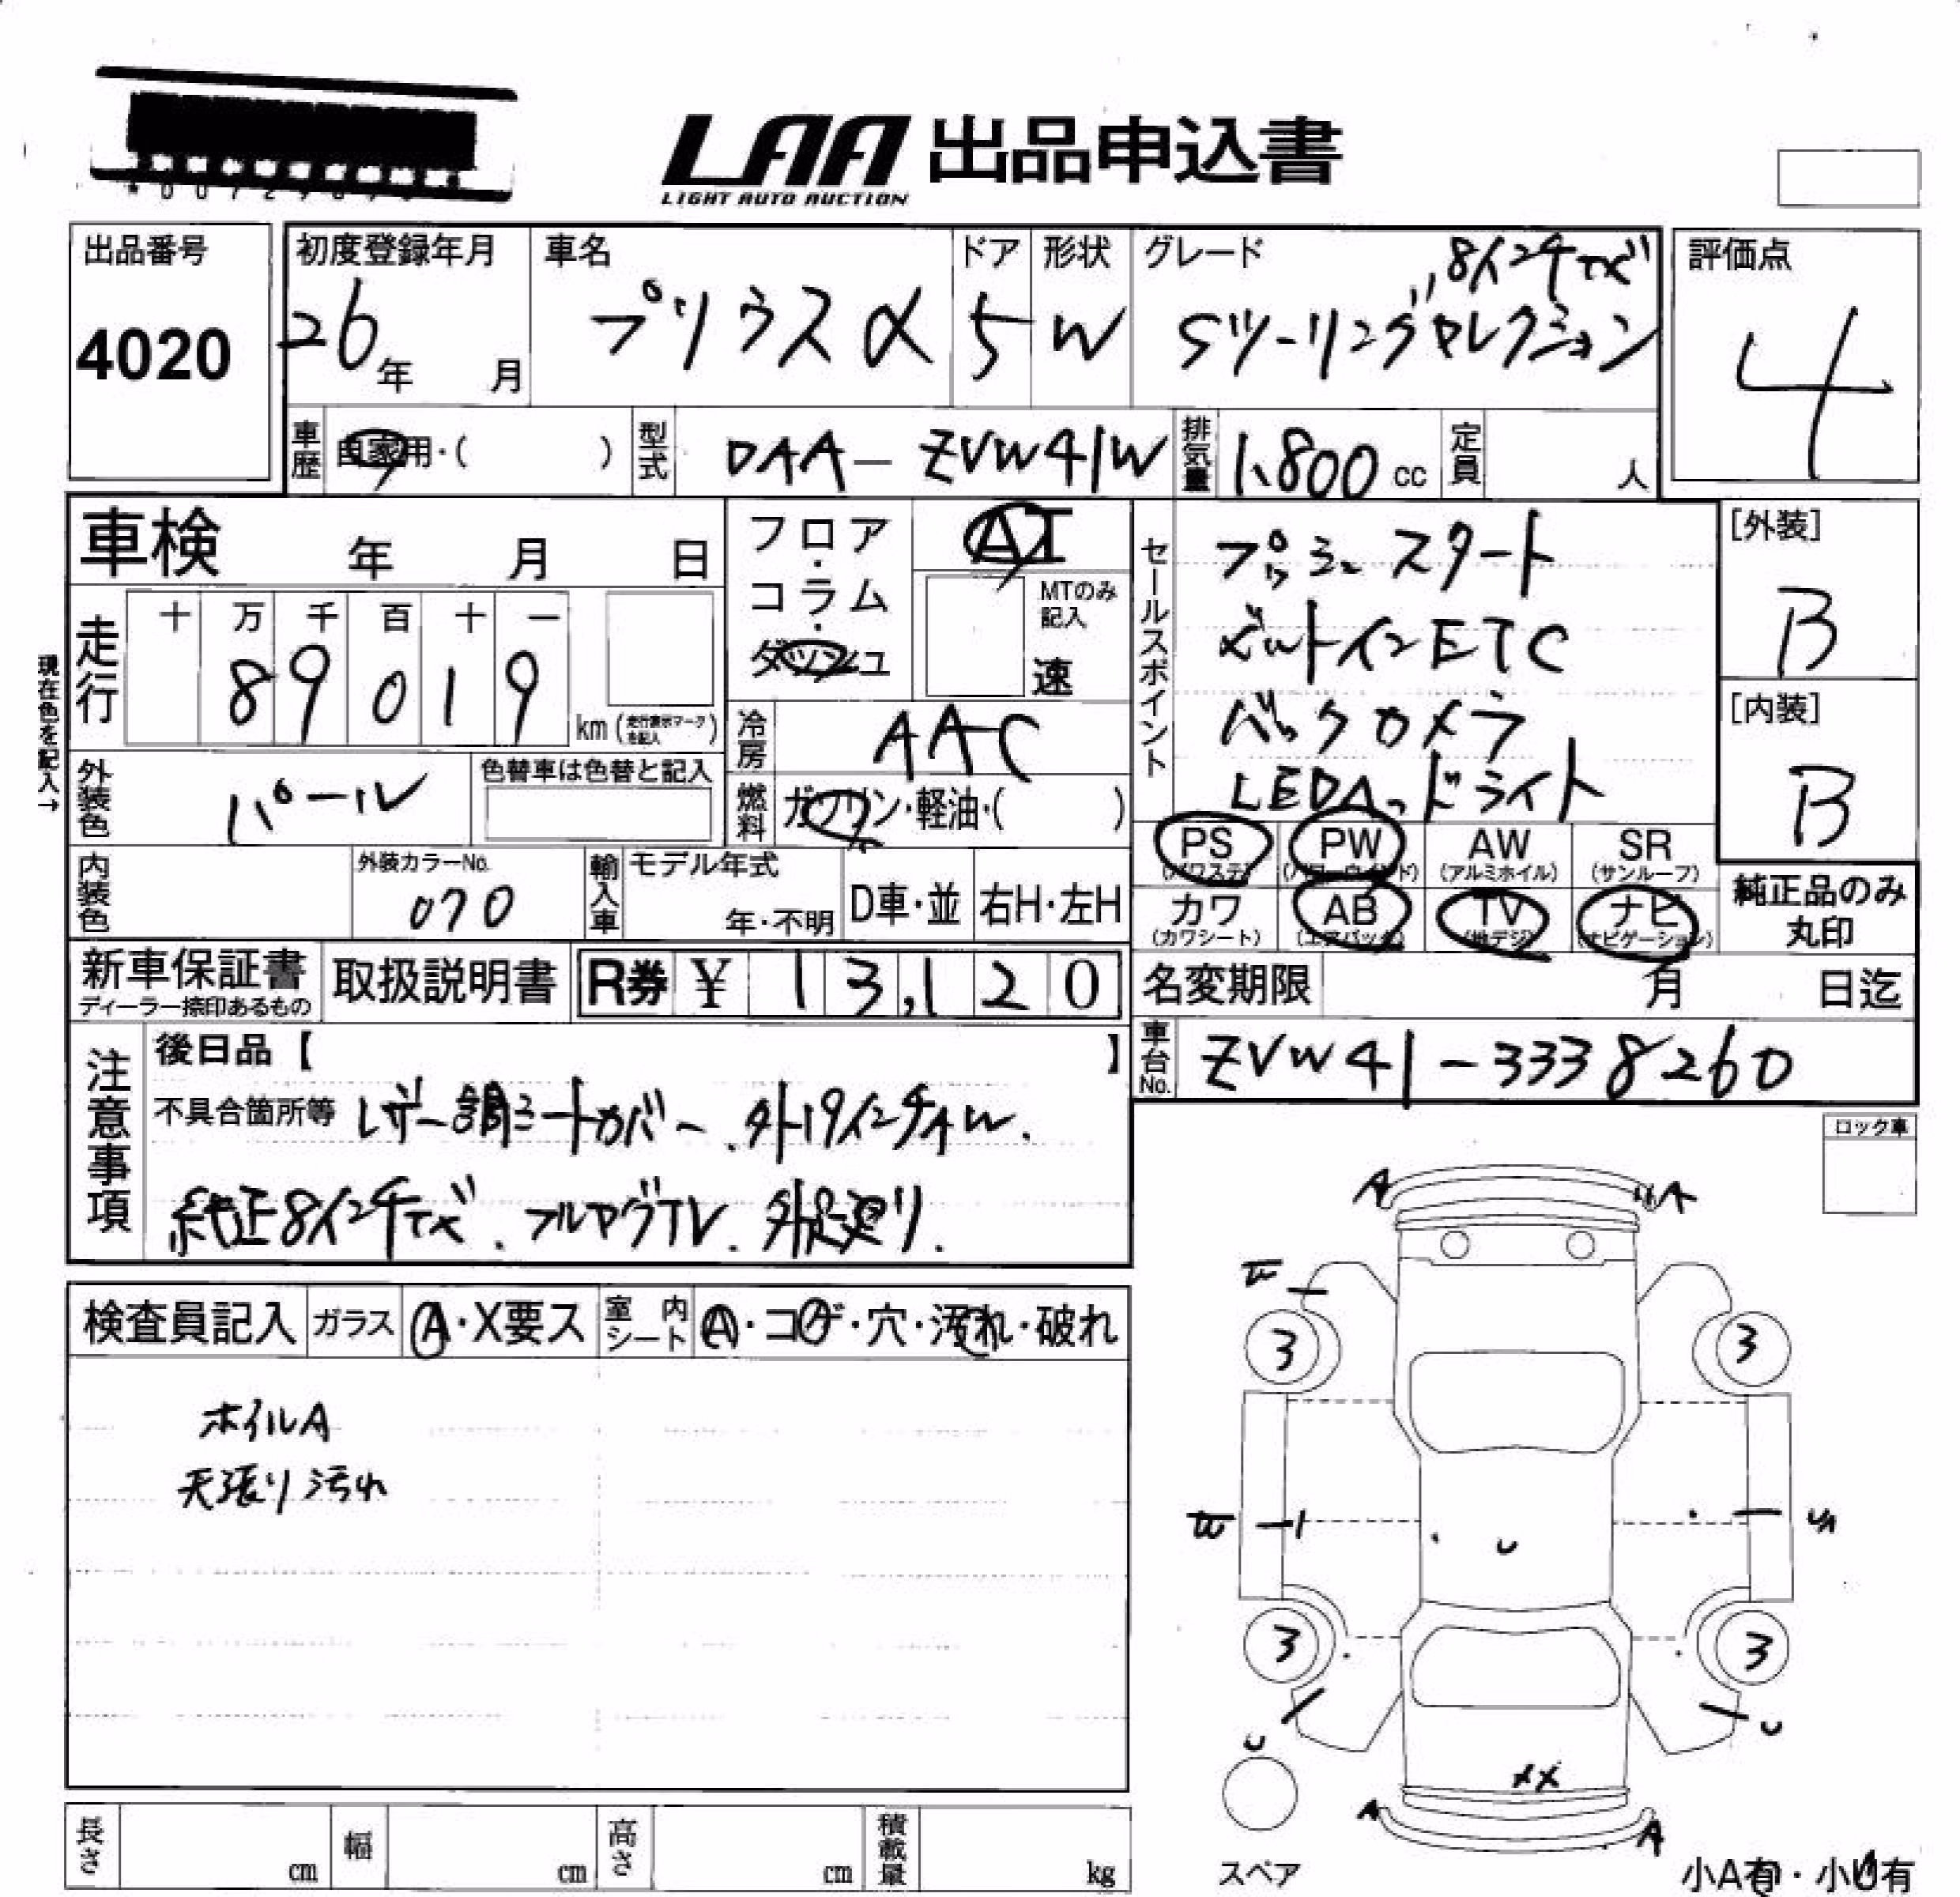 LAA 出品申込書
LIGHT AUTO AUCTION
出品番号
4020
初度登録年月
26年 月
車名
プリウスα
ドア
5
形状
W
グレード
8インチナビ
Sツーリングセレクション
評価点
4
車歴
自家用・( )
型式
DAA-ZVW41W
排気量
1,800 cc
定員
人
車検 年 月 日
フロア・コラム・ダッシュ
AT
MTのみ記入
速
セールスポイント
プッシュスタート
ビルトインETC
バックカメラ
LEDヘッドライト
[外装]
B
[内装]
B
現在色を記入→
走行
十 万 千 百 十 一
8 9 0 1 9
km (走行表示マークを記入)
冷房
AAC
外装色
パール
色替車は色替と記入
燃料
ガソリン・軽油・( )
PS (パワステ)
PW (パワーウインド)
AW (アルミホイル)
SR (サンルーフ)
カワ (カワシート)
AB (エアバック)
TV (地デジ)
ナビ (ナビゲーション)
純正品のみ
丸印
内装色
外装カラーNo.
070
輸入車
モデル年式
年・不明
D車・並
右H・左H
新車保証書
ディーラー捺印あるもの
取扱説明書
R券 ¥ 13,120
名変期限 月 日迄
車台No.
ZVW41-3338260
注意事項
後日品【 】
不具合箇所等 レザー調シートカバー、外19インチAW.
純正8インチナビ、フルセグTV、外足廻り.
ロック車
検査員記入
ガラス
A・X要ス
室内シート
A・コゲ・穴・汚れ・破れ
ホイルA
天張り汚れ
A A
3 3
U
3 3
U U
XX
A A
スペア
小A有・小U有
長さ cm
幅 cm
高さ cm
積載量 kg